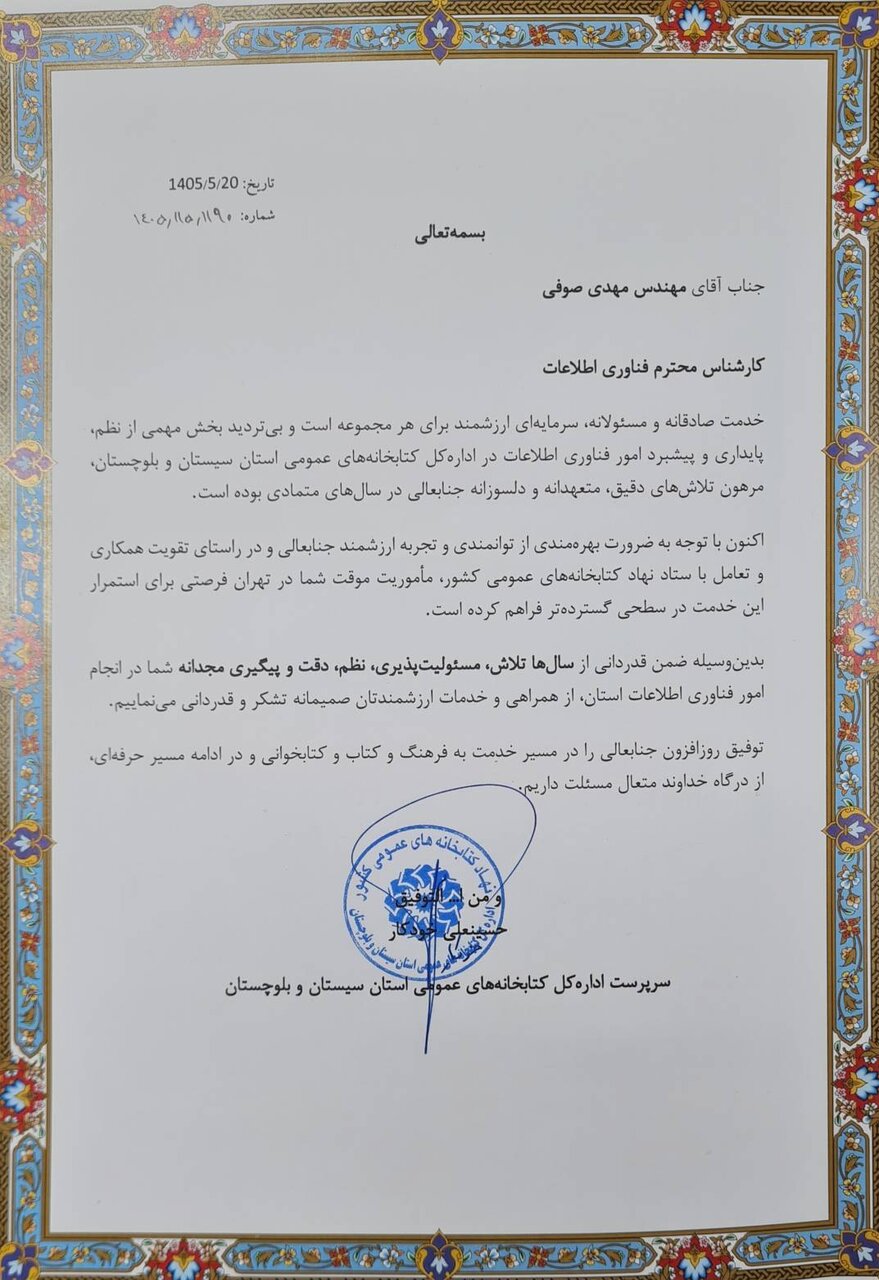 تاریخ: 1405/5/20
شماره: ۱۴۰۵/۱۱۵/۱۱۹۰
بسمه‌تعالی
جناب آقای مهندس مهدی صوفی
کارشناس محترم فناوری اطلاعات
خدمت صادقانه و مسئولانه، سرمایه‌ای ارزشمند برای هر مجموعه است و بی‌تردید بخش مهمی از نظم،
پایداری و پیشبرد امور فناوری اطلاعات در اداره‌کل کتابخانه‌های عمومی استان سیستان و بلوچستان،
مرهون تلاش‌های دقیق، متعهدانه و دلسوزانه جنابعالی در سال‌های متمادی بوده است.
اکنون با توجه به ضرورت بهره‌مندی از توانمندی و تجربه ارزشمند جنابعالی و در راستای تقویت همکاری
و تعامل با ستاد نهاد کتابخانه‌های عمومی کشور، مأموریت موقت شما در تهران فرصتی برای استمرار
این خدمت در سطحی گسترده‌تر فراهم کرده است.
بدین‌وسیله ضمن قدردانی از سال‌ها تلاش، مسئولیت‌پذیری، نظم، دقت و پیگیری مجدانه شما در انجام
امور فناوری اطلاعات استان، از همراهی و خدمات ارزشمندتان صمیمانه تشکر و قدردانی می‌نماییم.
توفیق روزافزون جنابعالی را در مسیر خدمت به فرهنگ و کتاب و کتابخوانی و در ادامه مسیر حرفه‌ای،
از درگاه خداوند متعال مسئلت داریم.
نهاد کتابخانه های عمومی کشور
و من ا... التوفیق
حسینعلی خودکار
اداره کل کتابخانه‌های عمومی استان سیستان و بلوچستان
سرپرست اداره‌کل کتابخانه‌های عمومی استان سیستان و بلوچستان